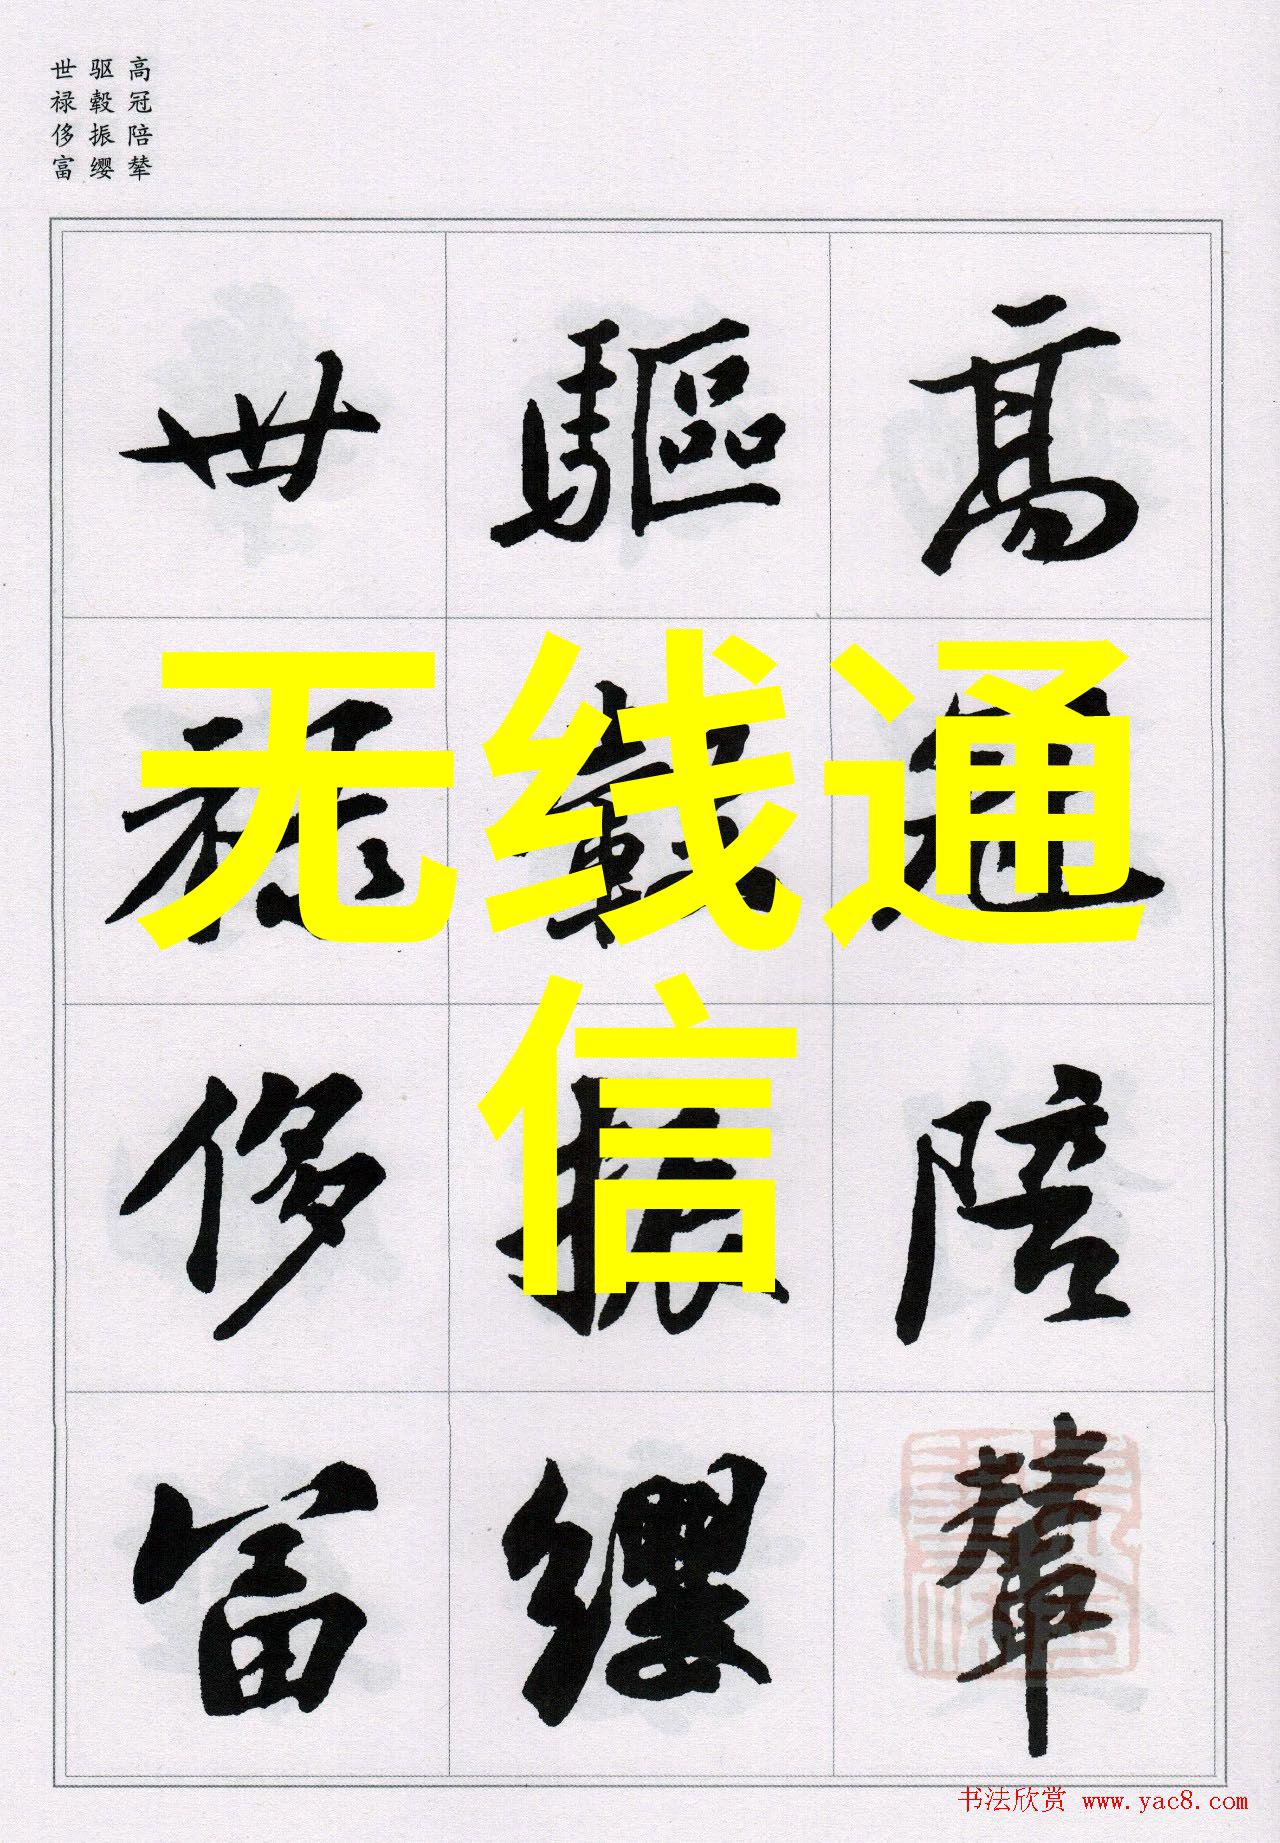 高冠陪辇
驱毂振缨
世禄侈富
高冠陪輦
驅轂振纓
世禄侈富
无线通
信
书法欣赏 www.yac8.com